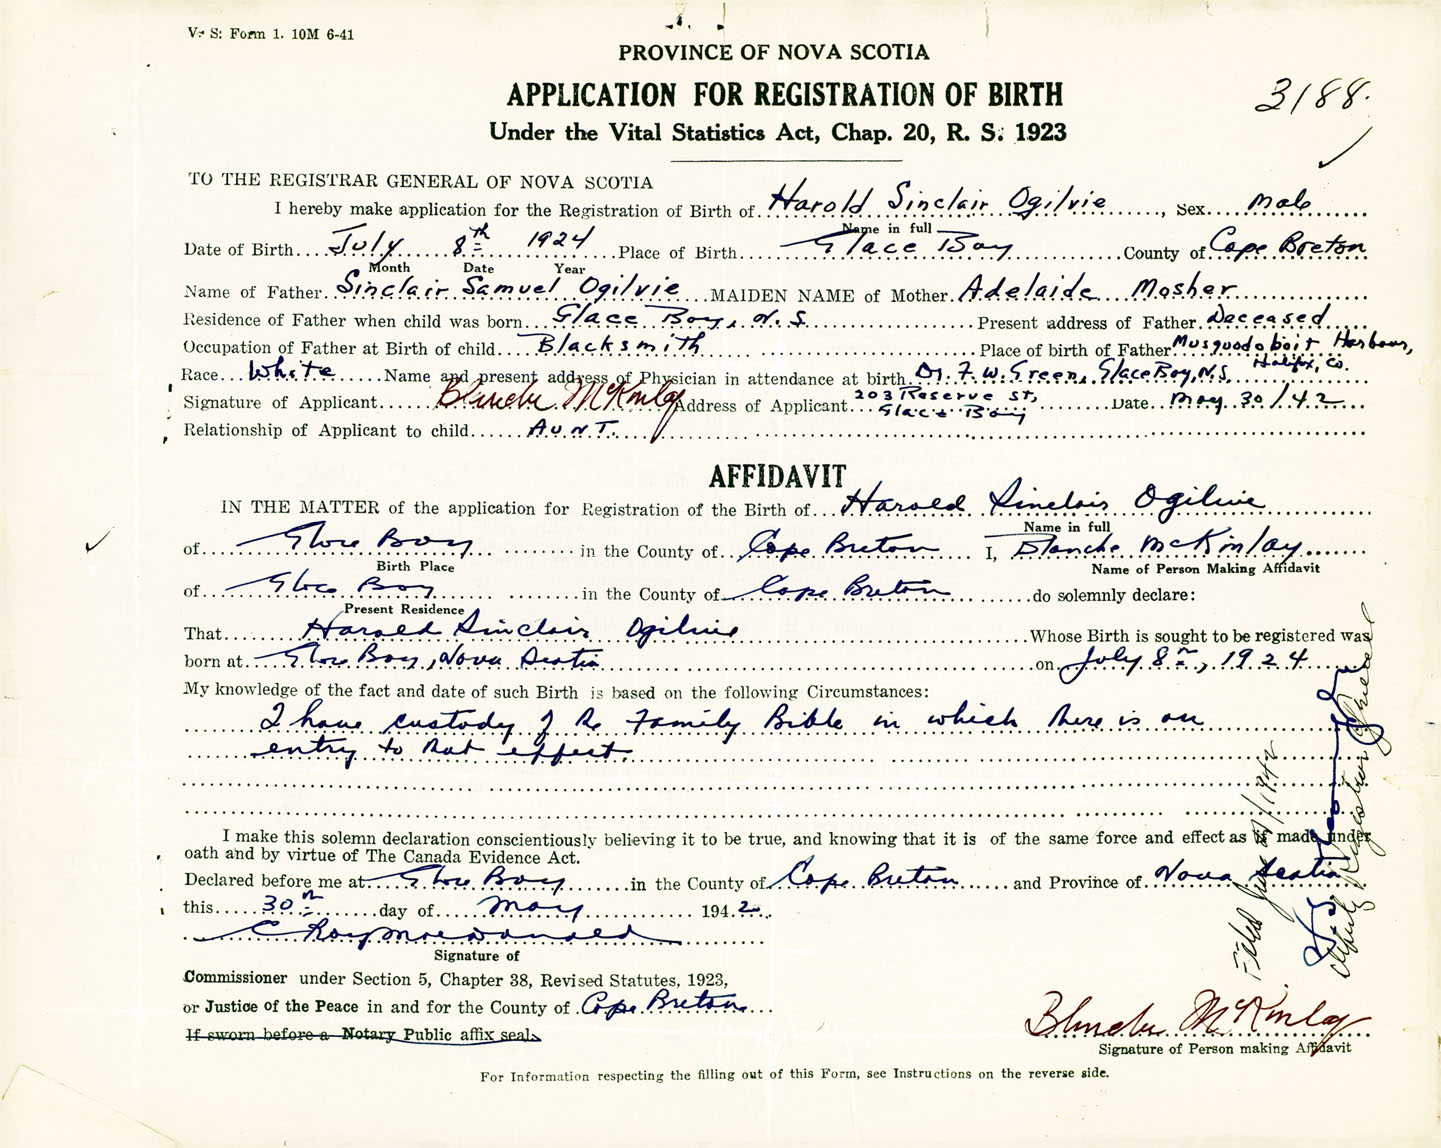 V. S. Form 1. 10M 6-41
PROVINCE OF NOVA SCOTIA
APPLICATION FOR REGISTRATION OF BIRTH
3188.
Under the Vital Statistics Act, Chap. 20, R. S. 1923
TO THE REGISTRAR GENERAL OF NOVA SCOTIA
I hereby make application for the Registration of Birth of Harold Sinclair Ogilvie, Sex Male
Name in full
Date of Birth July 8th 1924 Place of Birth Glace Bay County of Cape Breton
Month Date Year
Name of Father Sinclair Samuel Ogilvie MAIDEN NAME of Mother Adelaide Mosher
Residence of Father when child was born Glace Bay, N.S Present address of Father Deceased
Occupation of Father at Birth of child Blacksmith Place of birth of Father Musquodoboit Harbour, Halifax, Co.
Race White Name and present address of Physician in attendance at birth Dr. F. W. Green, Glace Bay, N.S.
Signature of Applicant Blanche McKinlay Address of Applicant 203 Reserve St, Glace Bay Date May 30/42
Relationship of Applicant to child AUNT.
AFFIDAVIT
IN THE MATTER of the application for Registration of the Birth of Harold Sinclair Ogilvie
Name in full
of Glace Bay in the County of Cape Breton I, Blanche McKinlay
Birth Place Name of Person Making Affidavit
of Glace Bay in the County of Cape Breton do solemnly declare:
Present Residence
That Harold Sinclair Ogilvie Whose Birth is sought to be registered was
born at Glace Bay, Nova Scotia on July 8th, 1924
My knowledge of the fact and date of such Birth is based on the following Circumstances:
I have custody of the Family Bible in which there is an
entry to that effect.
I make this solemn declaration conscientiously believing it to be true, and knowing that it is of the same force and effect as if made under
oath and by virtue of The Canada Evidence Act.
Declared before me at Glace Bay in the County of Cape Breton and Province of Nova Scotia
this 30th day of May 1942.
C Roy Macdonald
Signature of
Commissioner under Section 5, Chapter 38, Revised Statutes, 1923,
or Justice of the Peace in and for the County of Cape Breton
If sworn before a Notary Public affix seal.
Blanche McKinlay
Signature of Person making Affidavit
For Information respecting the filling out of this Form, see Instructions on the reverse side.
Filed 1942
Deputy Registrar General